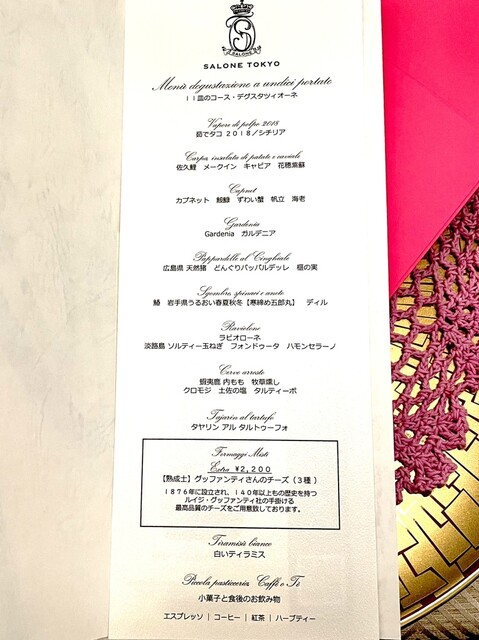 S
SALONE
SALONE TOKYO
Menù degustazione a undici portate
11皿のコース・デグスタツィオーネ
Vapore di polpo 2018
茹でタコ 2018/シチリア
Carpa, insalata di patate e caviale
佐久鯉 メークイン キャビア 花穂紫蘇
Capnet
カプネット 鮟鱇 ずわい蟹 帆立 海老
Gardenia
Gardenia ガルデニア
Pappardelle al Cinghiale
広島県 天然猪 どんぐりパッパルデッレ 榧の実
Sgombro, spinaci e aneto
鰆 岩手県うるおい春夏秋冬【寒締め五郎丸】 ディル
Raviolone
ラビオローネ
淡路島 ソルティー玉ねぎ フォンドゥータ ハモンセラーノ
Cervo arrosto
蝦夷鹿 内もも 牧草燻し
クロモジ 土佐の塩 タルティーポ
Tajarin al tartufo
タヤリン アル タルトゥーフォ
Formaggi Misti
Extra ¥2,200
【熟成士】グッファンティさんのチーズ(3種)
1876年に設立され、140年以上もの歴史を持つ
ルイジ・グッファンティ社の手掛ける
最高品質のチーズをご用意致しております。
Tiramisù bianco
白いティラミス
Piccola pasticceria Caffè o Tè
小菓子と食後のお飲み物
エスプレッソ | コーヒー | 紅茶 | ハーブティー